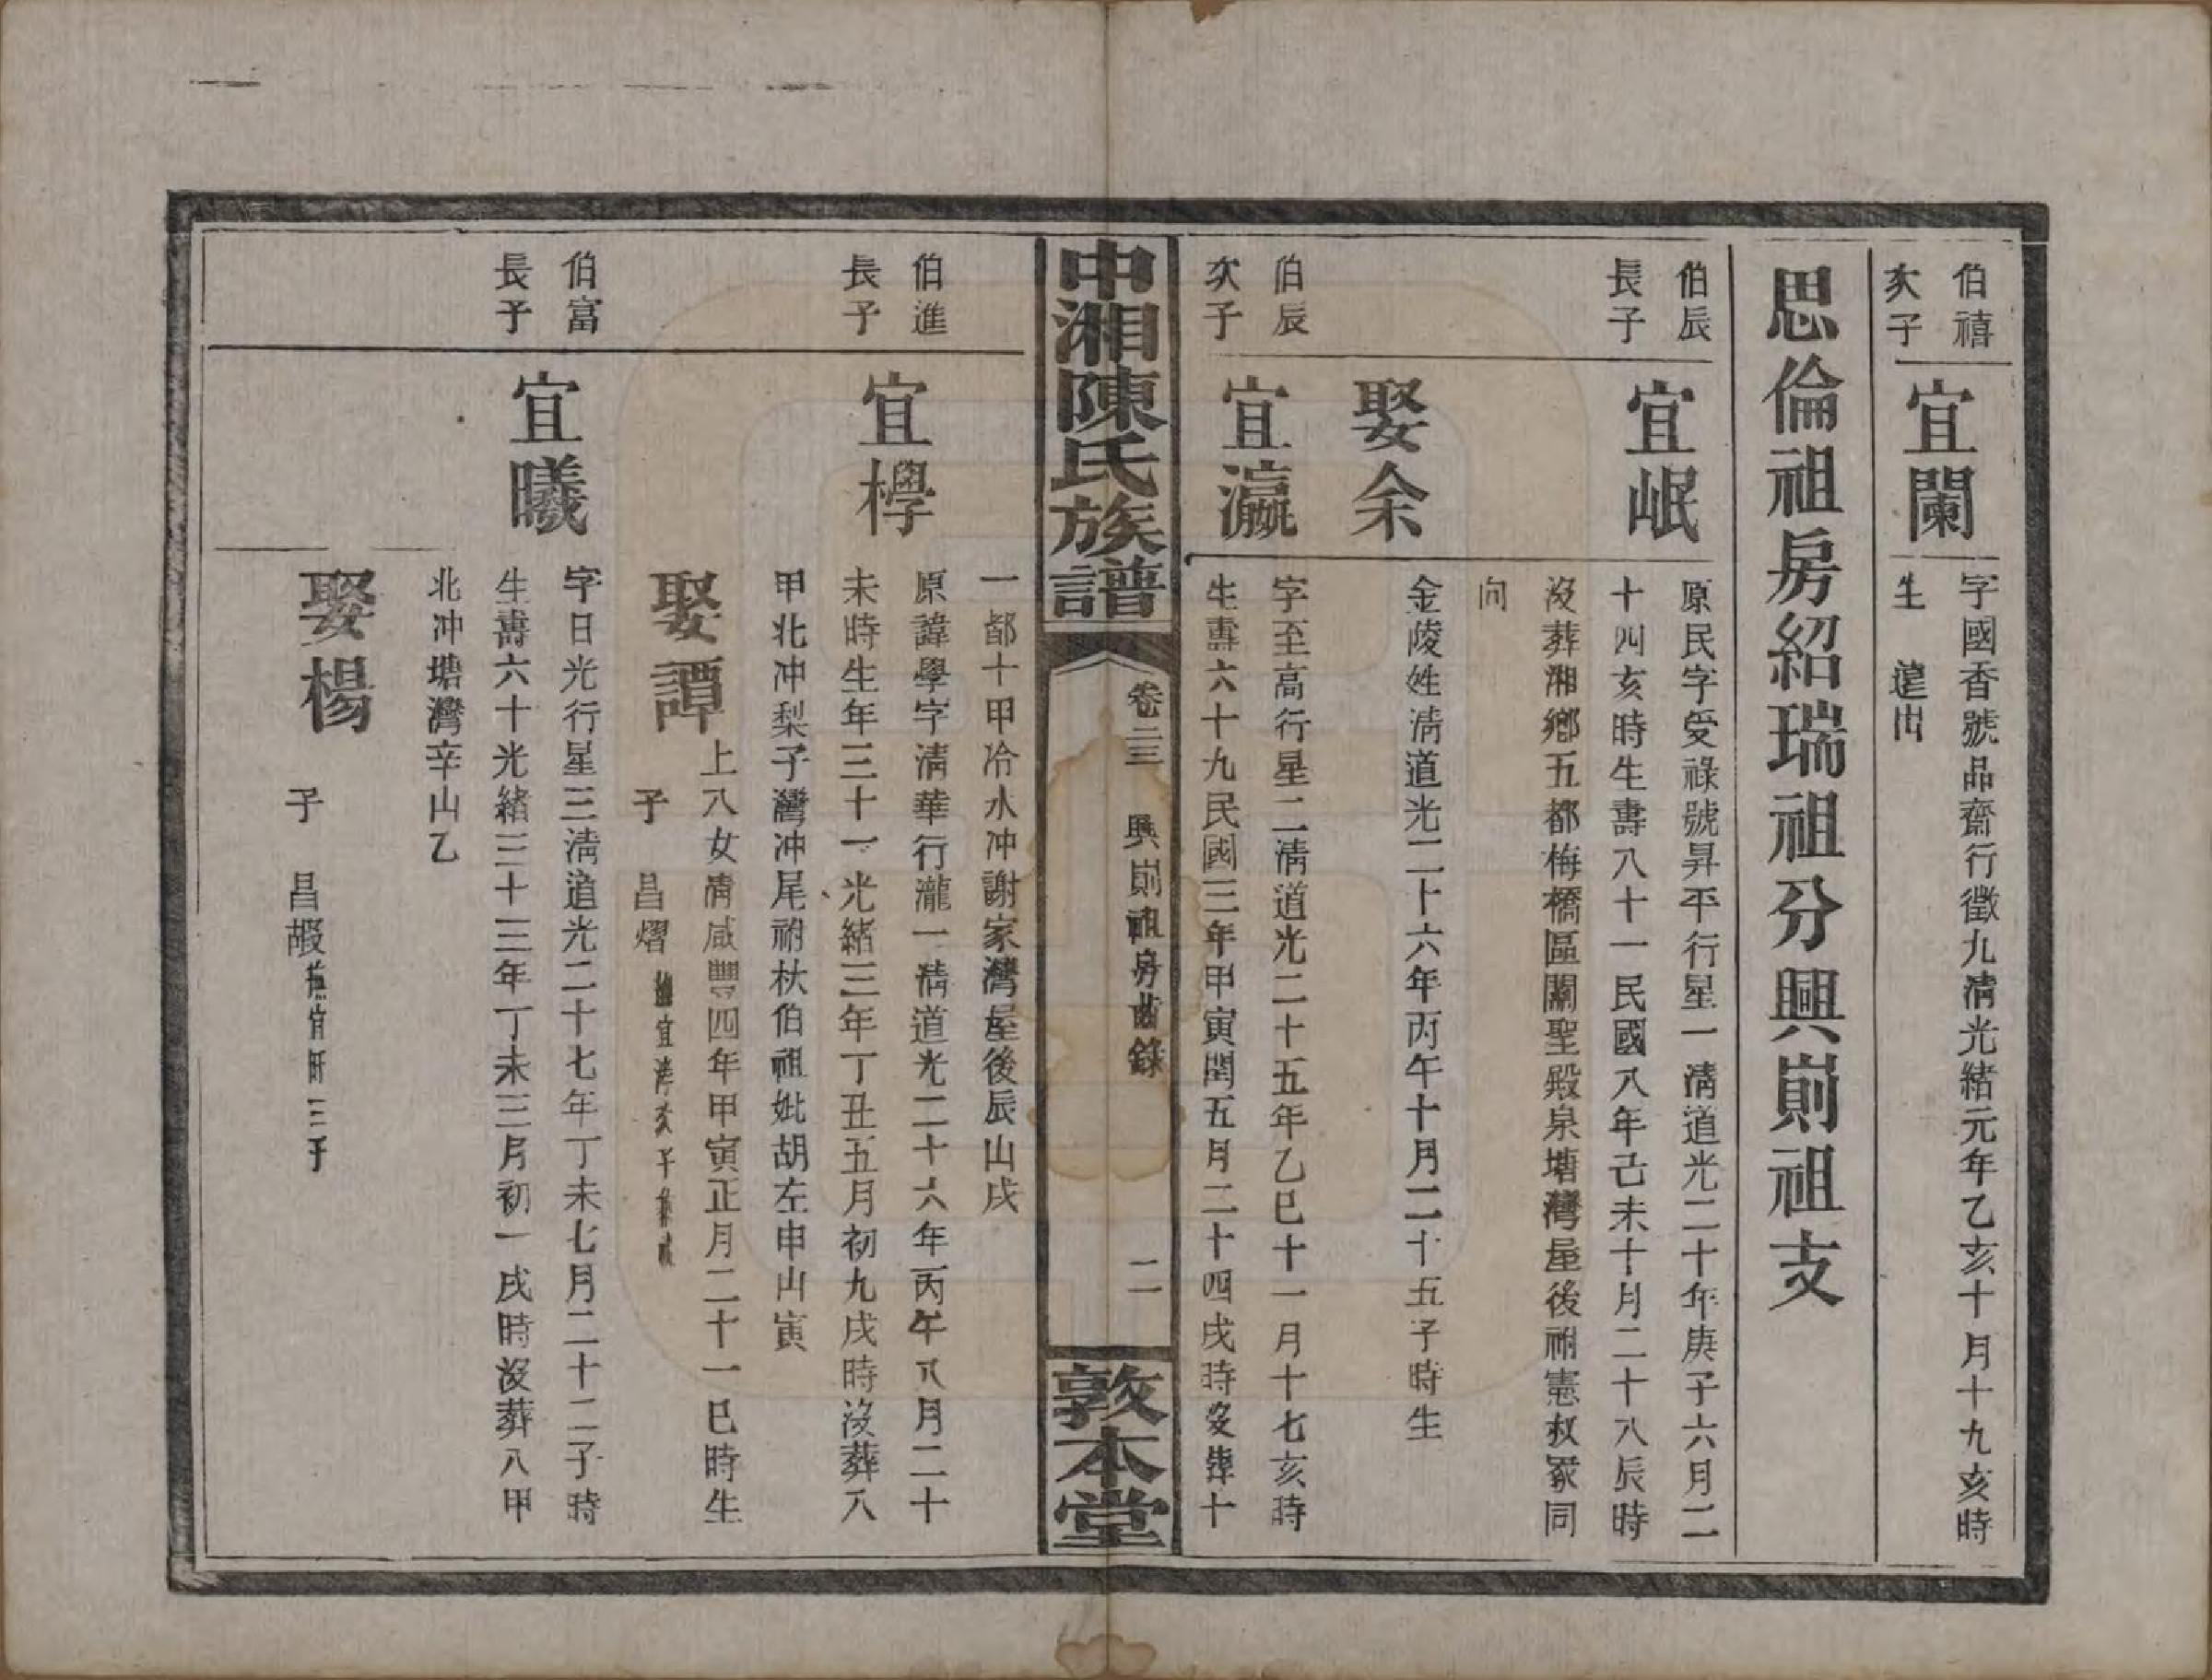 伯禧
次子
宜闌
字國香號品齋行徵九淸光緖元年乙亥十月十九亥時
生　遠出
思倫祖房紹瑞祖分興崱祖支
伯辰
長子
宜岷
原民字受祿號昇平行星一淸道光二十年庚子六月二
十四亥時生壽八十一民國八年己未十月二十八辰時
沒葬湘鄉五都梅橋區關聖殿泉塘灣屋後祔憲叔冢同
向
娶余
金陵姓淸道光二十六年丙午十月二十五子時生
伯辰
次子
宜瀛
字至高行星二淸道光二十五年乙巳十一月十七亥時
生壽六十九民國三年甲寅閏五月二十四戌時沒葬十
中湘陳氏族譜
卷二三　興崱祖房齒錄
二
敦本堂
一都十甲冷水冲謝家灣屋後辰山戌
伯進
長子
宜㰒
原諱學字淸華行瀧一淸道光二十六年丙午八月二十
未時生年三十一光緖三年丁丑五月初九戌時沒葬八
甲北冲梨子灣冲尾祔秋伯祖妣胡左申山寅
娶譚
上八女淸咸豐四年甲寅正月二十一巳時生
子　昌熠
伯富
長子
宜曦
字日光行星三淸道光二十七年丁未七月二十二子時
生壽六十光緖三十三年丁未三月初一戌時沒葬八甲
北冲塘灣辛山乙
娶楊
子　昌嘏撫宜昕三子